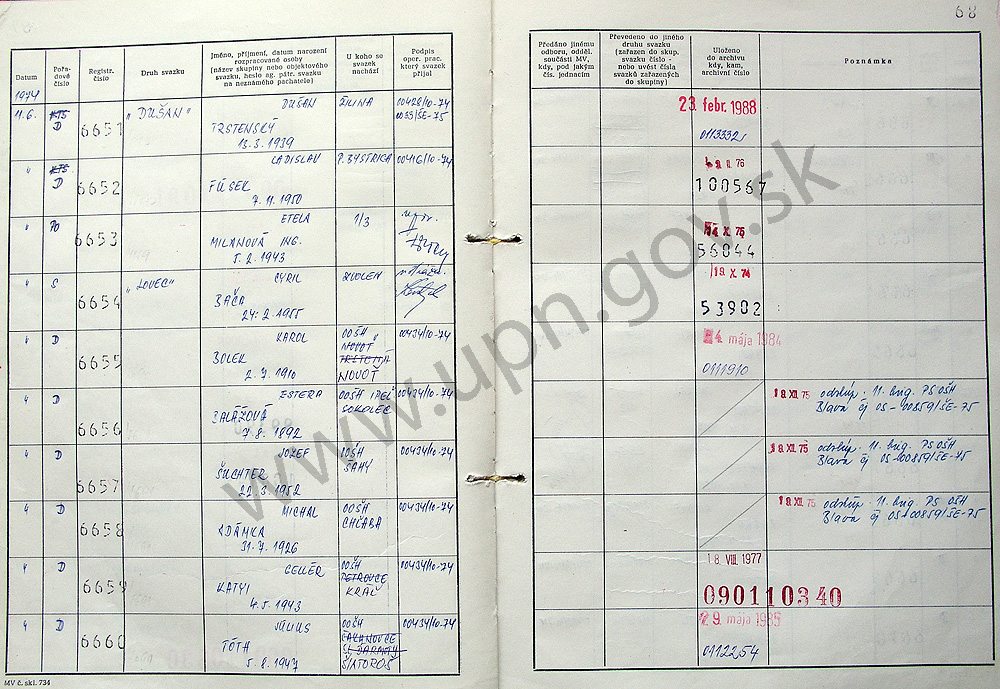 68
Datum
Pořadové číslo
Registr. číslo
Druh svazku
Jméno, příjmení, datum narození
rozpracované osoby
(název skupiny nebo objektového
svazku, heslo ag. pátr. svazku
na neznámého pachatele)
U koho se
svazek
nachází
Podpis
oper. prac.
který svazek
přijal
Předáno jinému
odboru, odděl.
součásti MV,
kdy, pod jakým
čís. jednacím
Převedeno do jiného
druhu svazku
(zařazen do skup.
svazku číslo -
nebo uvést čísla
svazků zařazených
do skupiny)
Uloženo
do archivu
kdy, kam,
archivní číslo
Poznámka
1974
11.6. KTS D 6651 "DUŠAN" DUŠAN ŽILINA 00428/10-74
TRSTENSKÝ
13.3.1939
23. febr. 1988
" KTS D 6652 LADISLAV P. BYSTRICA 00416/10-74
FÚSEK
7.11.1950
100567
" PO 6653 ETELA 1/3
MILANOVÁ ING.
5.2.1943
X. 75
56044
" S 6654 "LOVEC" CYRIL ZVOLEN
BAČA
24.2.1955
19. X. 74
53902
" D 6655 KAROL OOŠH 00434/10-74
NOVOŤ
BOLEK
2.7.1910
NOVOŤ
4 mája 1984
0111910
" D 6656 ESTERA OOŠH IPEĽ 00434/10-74
SOKOLEC
BALÁŽOVÁ
7.8.1892
18 XII 75 odstúp. 11. brig. PS OŠH
Blava čj OS-00859/ŠE-75
" D 6657 JOZEF OOŠH 00434/10-74
ŠAHY
ŠUCHTER
22.3.1952
18 XII 75 odstúp. 11. brig. PS OŠH
Blava čj OS-00859/ŠE-75
" D 6658 MICHAL OOŠH 00434/10-74
CHĽABA
ADAMKA
31.7.1926
18 XII 75 odstúp. 11. brig. PS OŠH
Blava čj OS-00859/ŠE-75
" D 6659 GELLÉR OOŠH 00434/10-74
PETROVCE
KATYI KRÁĽ
4.5.1943
18 VIII 1977
090110340
" D 6660 JÚLIUS OOŠH 00434/10-74
TÓTH
5.8.1947 ŠIATOROŠ
29. mája 1985
0112254
MV č. skl. 734
www.upn.gov.sk